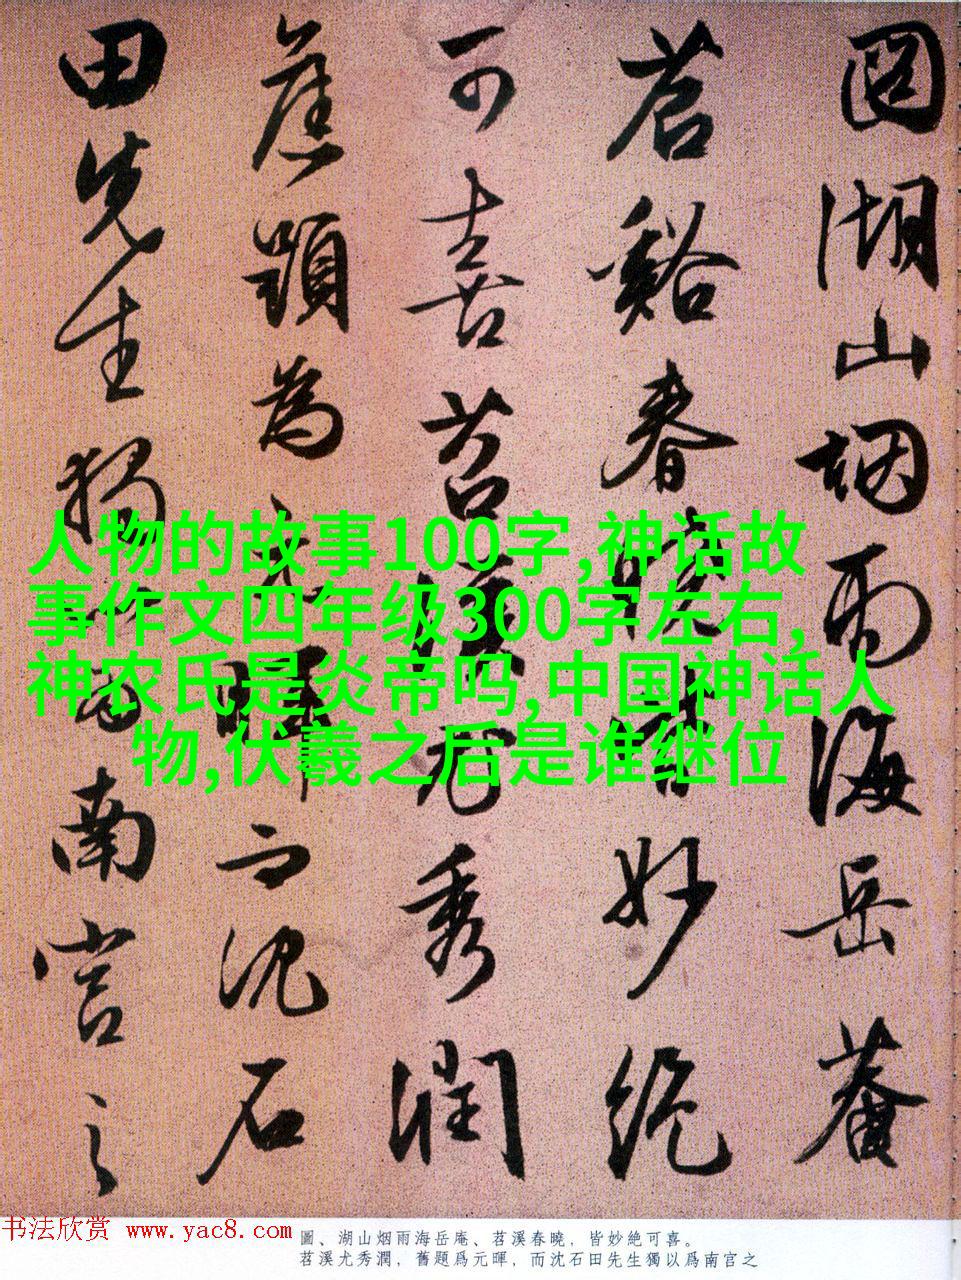 圖湖山烟雨海岳菴
苕谿春曉皆妙絶
可喜苕溪尤秀潤
舊題為元暉而沈石
田先生獨以為南宫之
人物的故事100字,神话故
事作文四年级300字左右,
神农氏是炎帝吗,中国神话人
物,伏羲之后是谁继位
书法欣赏 www.yac8.com
圖、湖山烟雨海岳庵、苕溪春曉，皆妙絶可喜。
苕溪尤秀潤，舊題爲元暉，而沈石田先生獨以爲南宫之